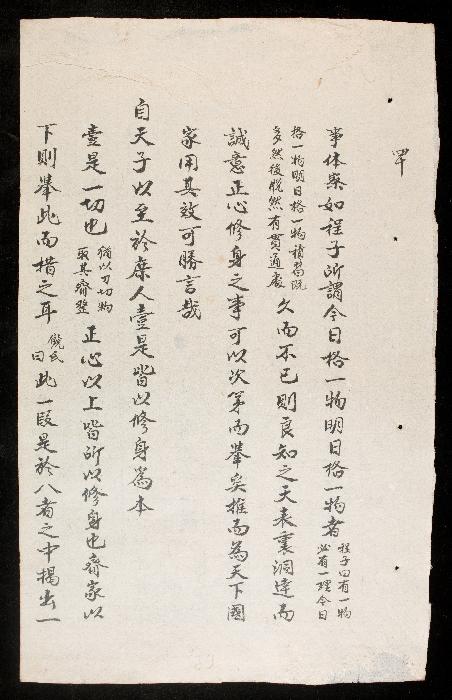 事体察如程子所謂今日格一物明日格一物者程子曰有一物必有一理今日
格一物明日格一物積習既多然後脱然有貫通處久而不已則良知之天表裏洞達而
誠意正心修身之事可以次第而擧矣推而為天下國
家用其效可勝言哉
自天子以至於庶人壹是皆以修身為本
壹是一切也猶以刀切物取其齊整正心以上皆所以修身也齊家以
下則擧此而措之耳饒氏曰此一段是於八者之中揭出一